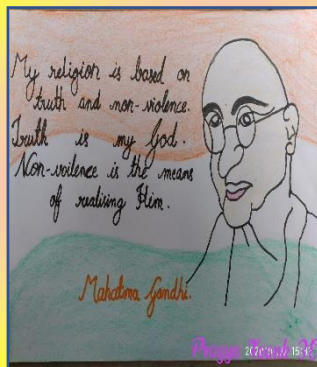 My religion is based on
truth and non-violence.
Truth is my God.
Non-voilence is the means
of realising Him.
Mahatma Gandhi.